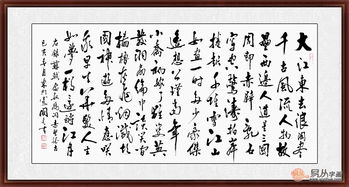 大江東去浪淘盡
千古風流人物故
壘西邊人道是三國
周郎赤壁亂石
穿空驚濤拍岸
捲起千堆雪江山
如畫一時多少豪傑
遙想公瑾當年
小喬初嫁了雄姿英
發羽扇綸巾談笑間
檣櫓灰飛煙滅故國
神遊多情應笑我
早生華髮人生
如夢一尊還酹江月
易从字画